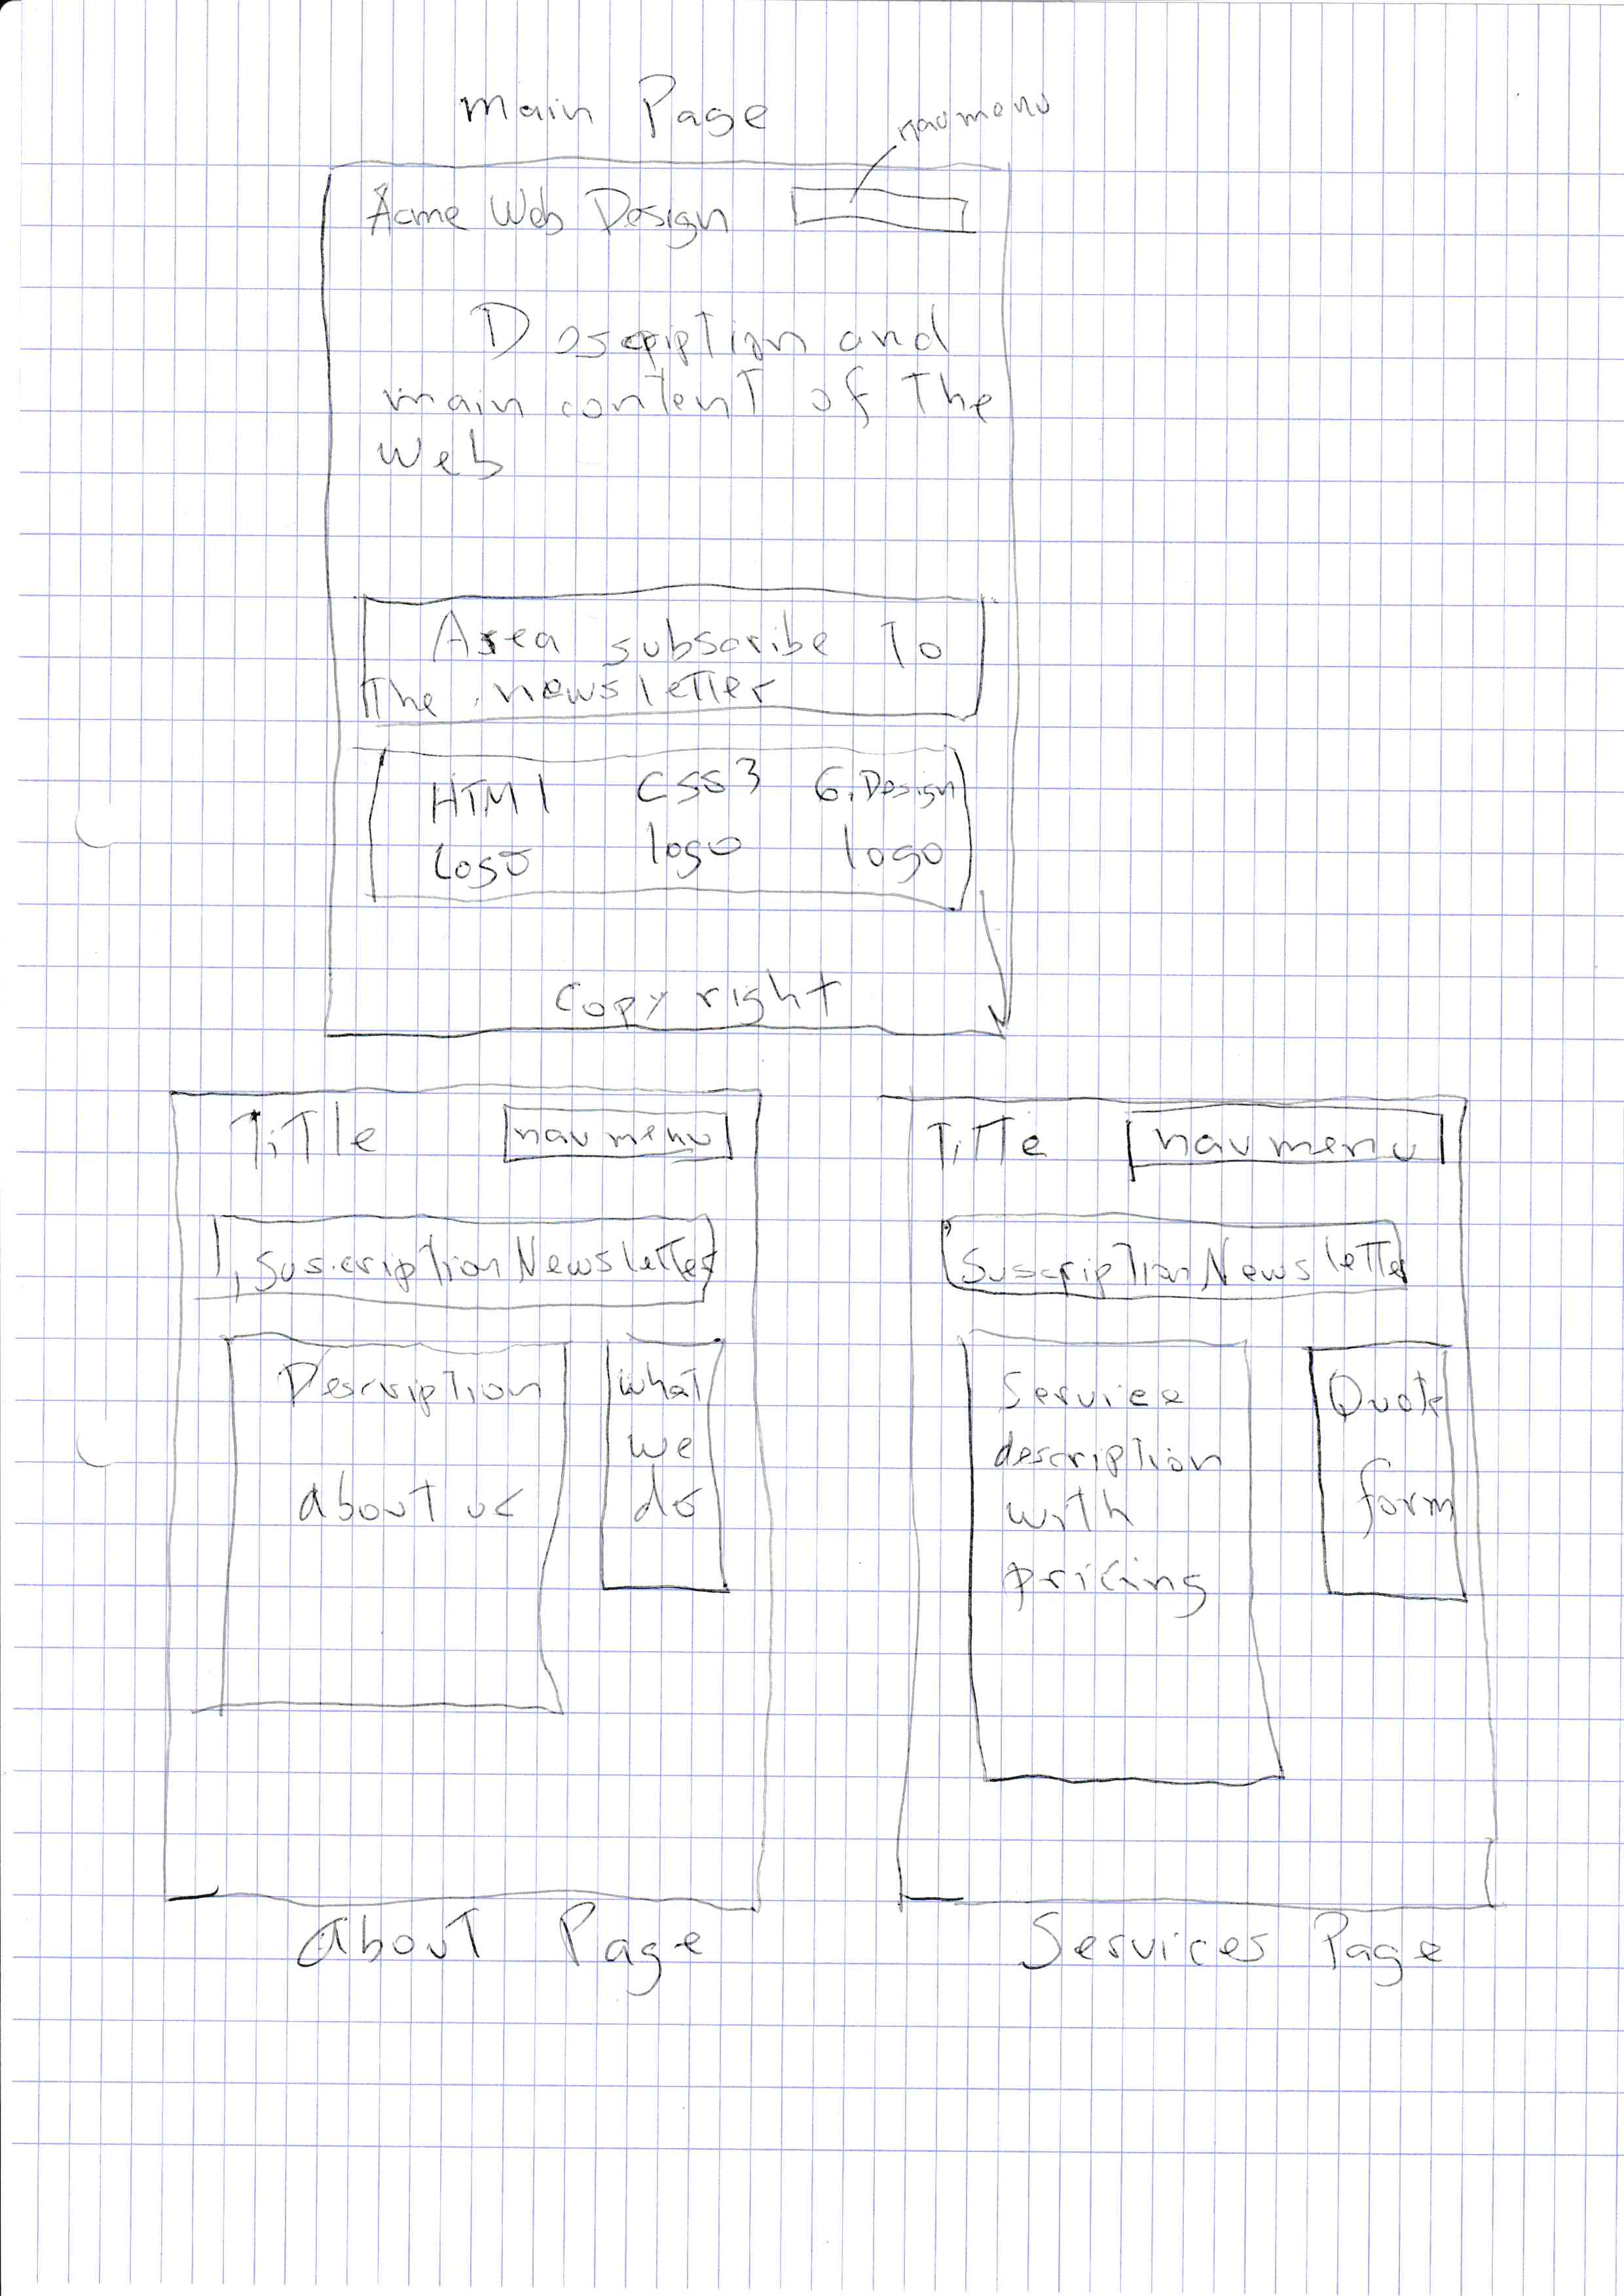 main Page
navmenu
Acme Web Design
Description and
main content of the
Web
Area subscribe to
the newsletter
HTMl CSS3 G.Design
logo logo logo
Copyright
Title navmenu
Suscription Newsletter
Description
about us
what
we
do
About Page
Title navmenu
Suscription Newsletter
Service
description
with
pricing
Quote
form
Services Page